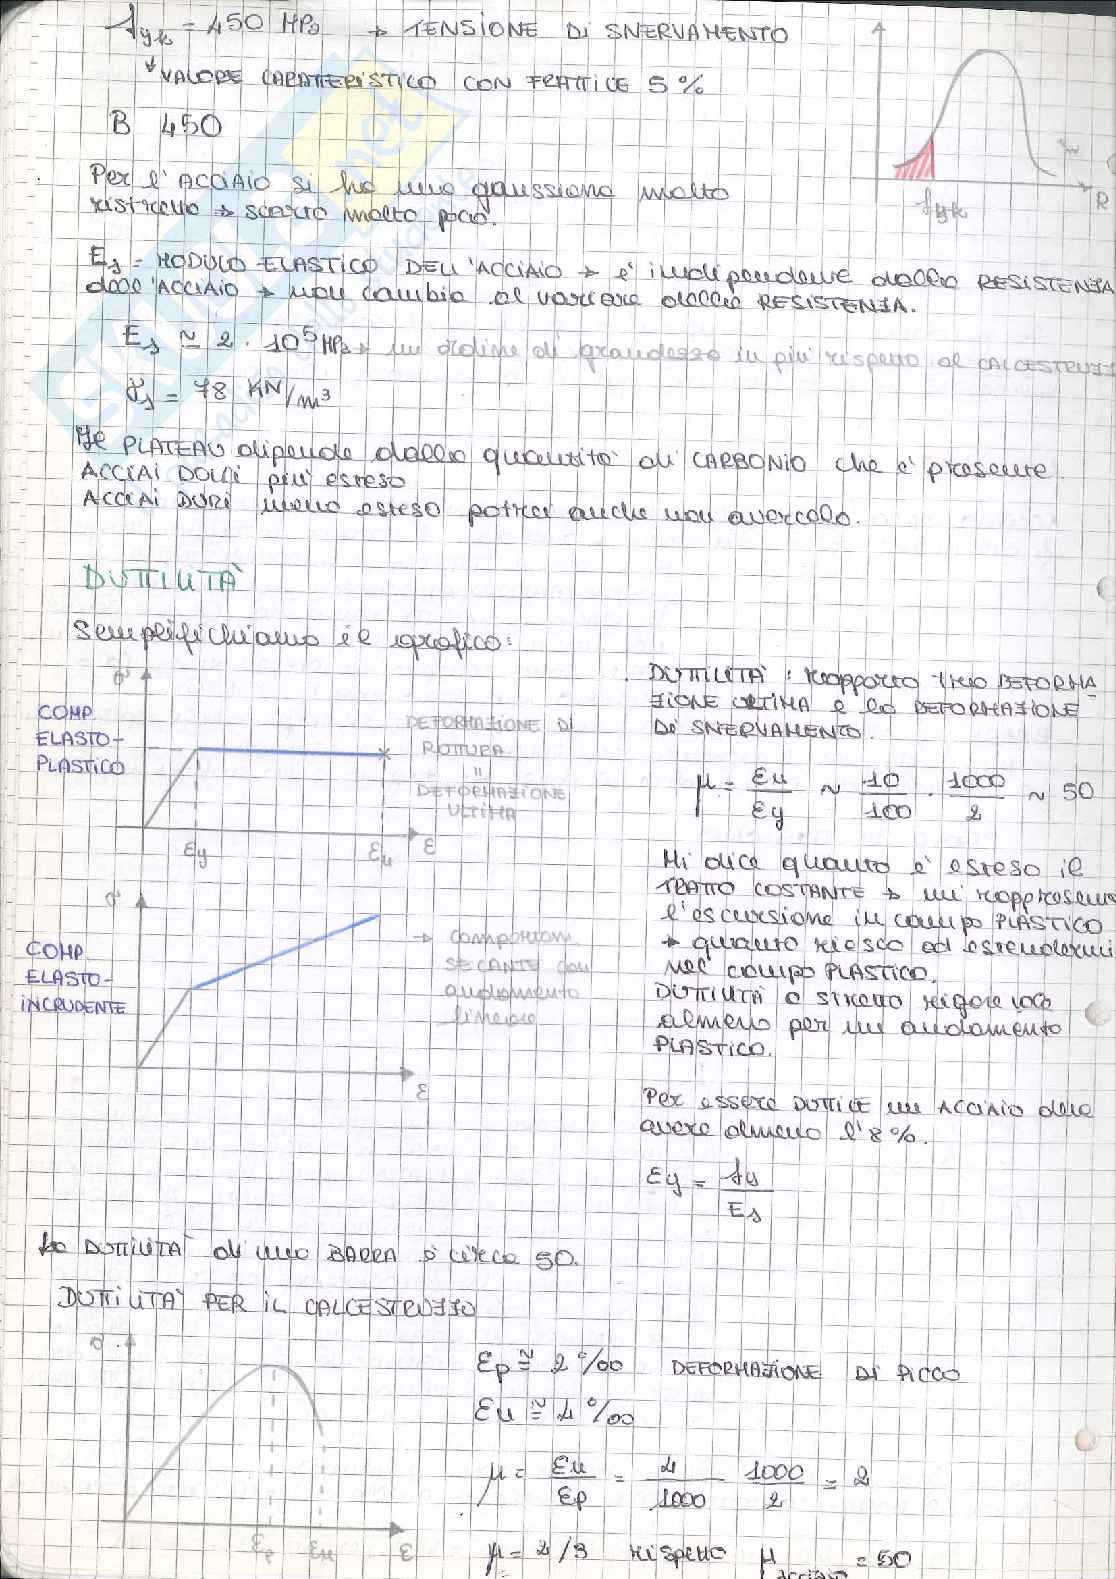 fyk = 450 MPa → TENSIONE Di SNERVAMENTO
↓ VALORE CARATTERISTICO CON FRATTILE 5%
B 450
fyk R
Per l'ACCIAIO si ha una gaussiana molto
ristretta → scarto molto poco.
Es = MODULO ELASTICO DELL'ACCIAIO → è indipendente dalla RESISTENZA
dell'ACCIAIO → non cambia al variare della RESISTENZA.
Es ≃ 2 · 10⁵ MPa → un ordine di grandezza in più rispetto al CALCESTRUZZ
γs = 78 KN/m³
Il PLATEAU dipende dalla quantità di CARBONIO che è presente.
ACCIAI DOLCI più esteso
ACCIAI DURI meno esteso potrei anche non avercelo.
DUTTILITÀ
Semplifichiamo il grafico:
σ
COMP.
ELASTO-
PLASTICO
DEFORMAZIONE DI
ROTTURA
=
DEFORMAZIONE
ULTIMA
εy εu ε
DUTTILITÀ: rapporto tra DEFORMA-
ZIONE ULTIMA e la DEFORMAZIONE
Di SNERVAMENTO.
μ = εu/εy ~ 10/100 · 1000/2 ~ 50
σ
COMP.
ELASTO-
INCRUDENTE
→ comportam.
SECANTE con
andamento
lineare
ε
Mi dice quanto è esteso il
TRATTO COSTANTE → mi rappresenta
l'escursione in campo PLASTICO
→ quanto riesco ad estendermi
nel campo PLASTICO.
DUTTILITÀ a stretto rigore
almeno per un andamento
PLASTICO.
Per essere DUTTILE un ACCIAIO deve
avere almeno l'8%.
εy = fy/Es
La DUTTILITÀ di una BARRA è circa 50.
DUTTILITÀ PER IL CALCESTRUZZO
σ
εp εu ε
εp ≅ 2‰ DEFORMAZIONE Di PICCO
εu ≅ 4‰
μ = εu/εp = 4/1000 1000/2 = 2
μ = 2/3 rispetto μ acciaio = 50